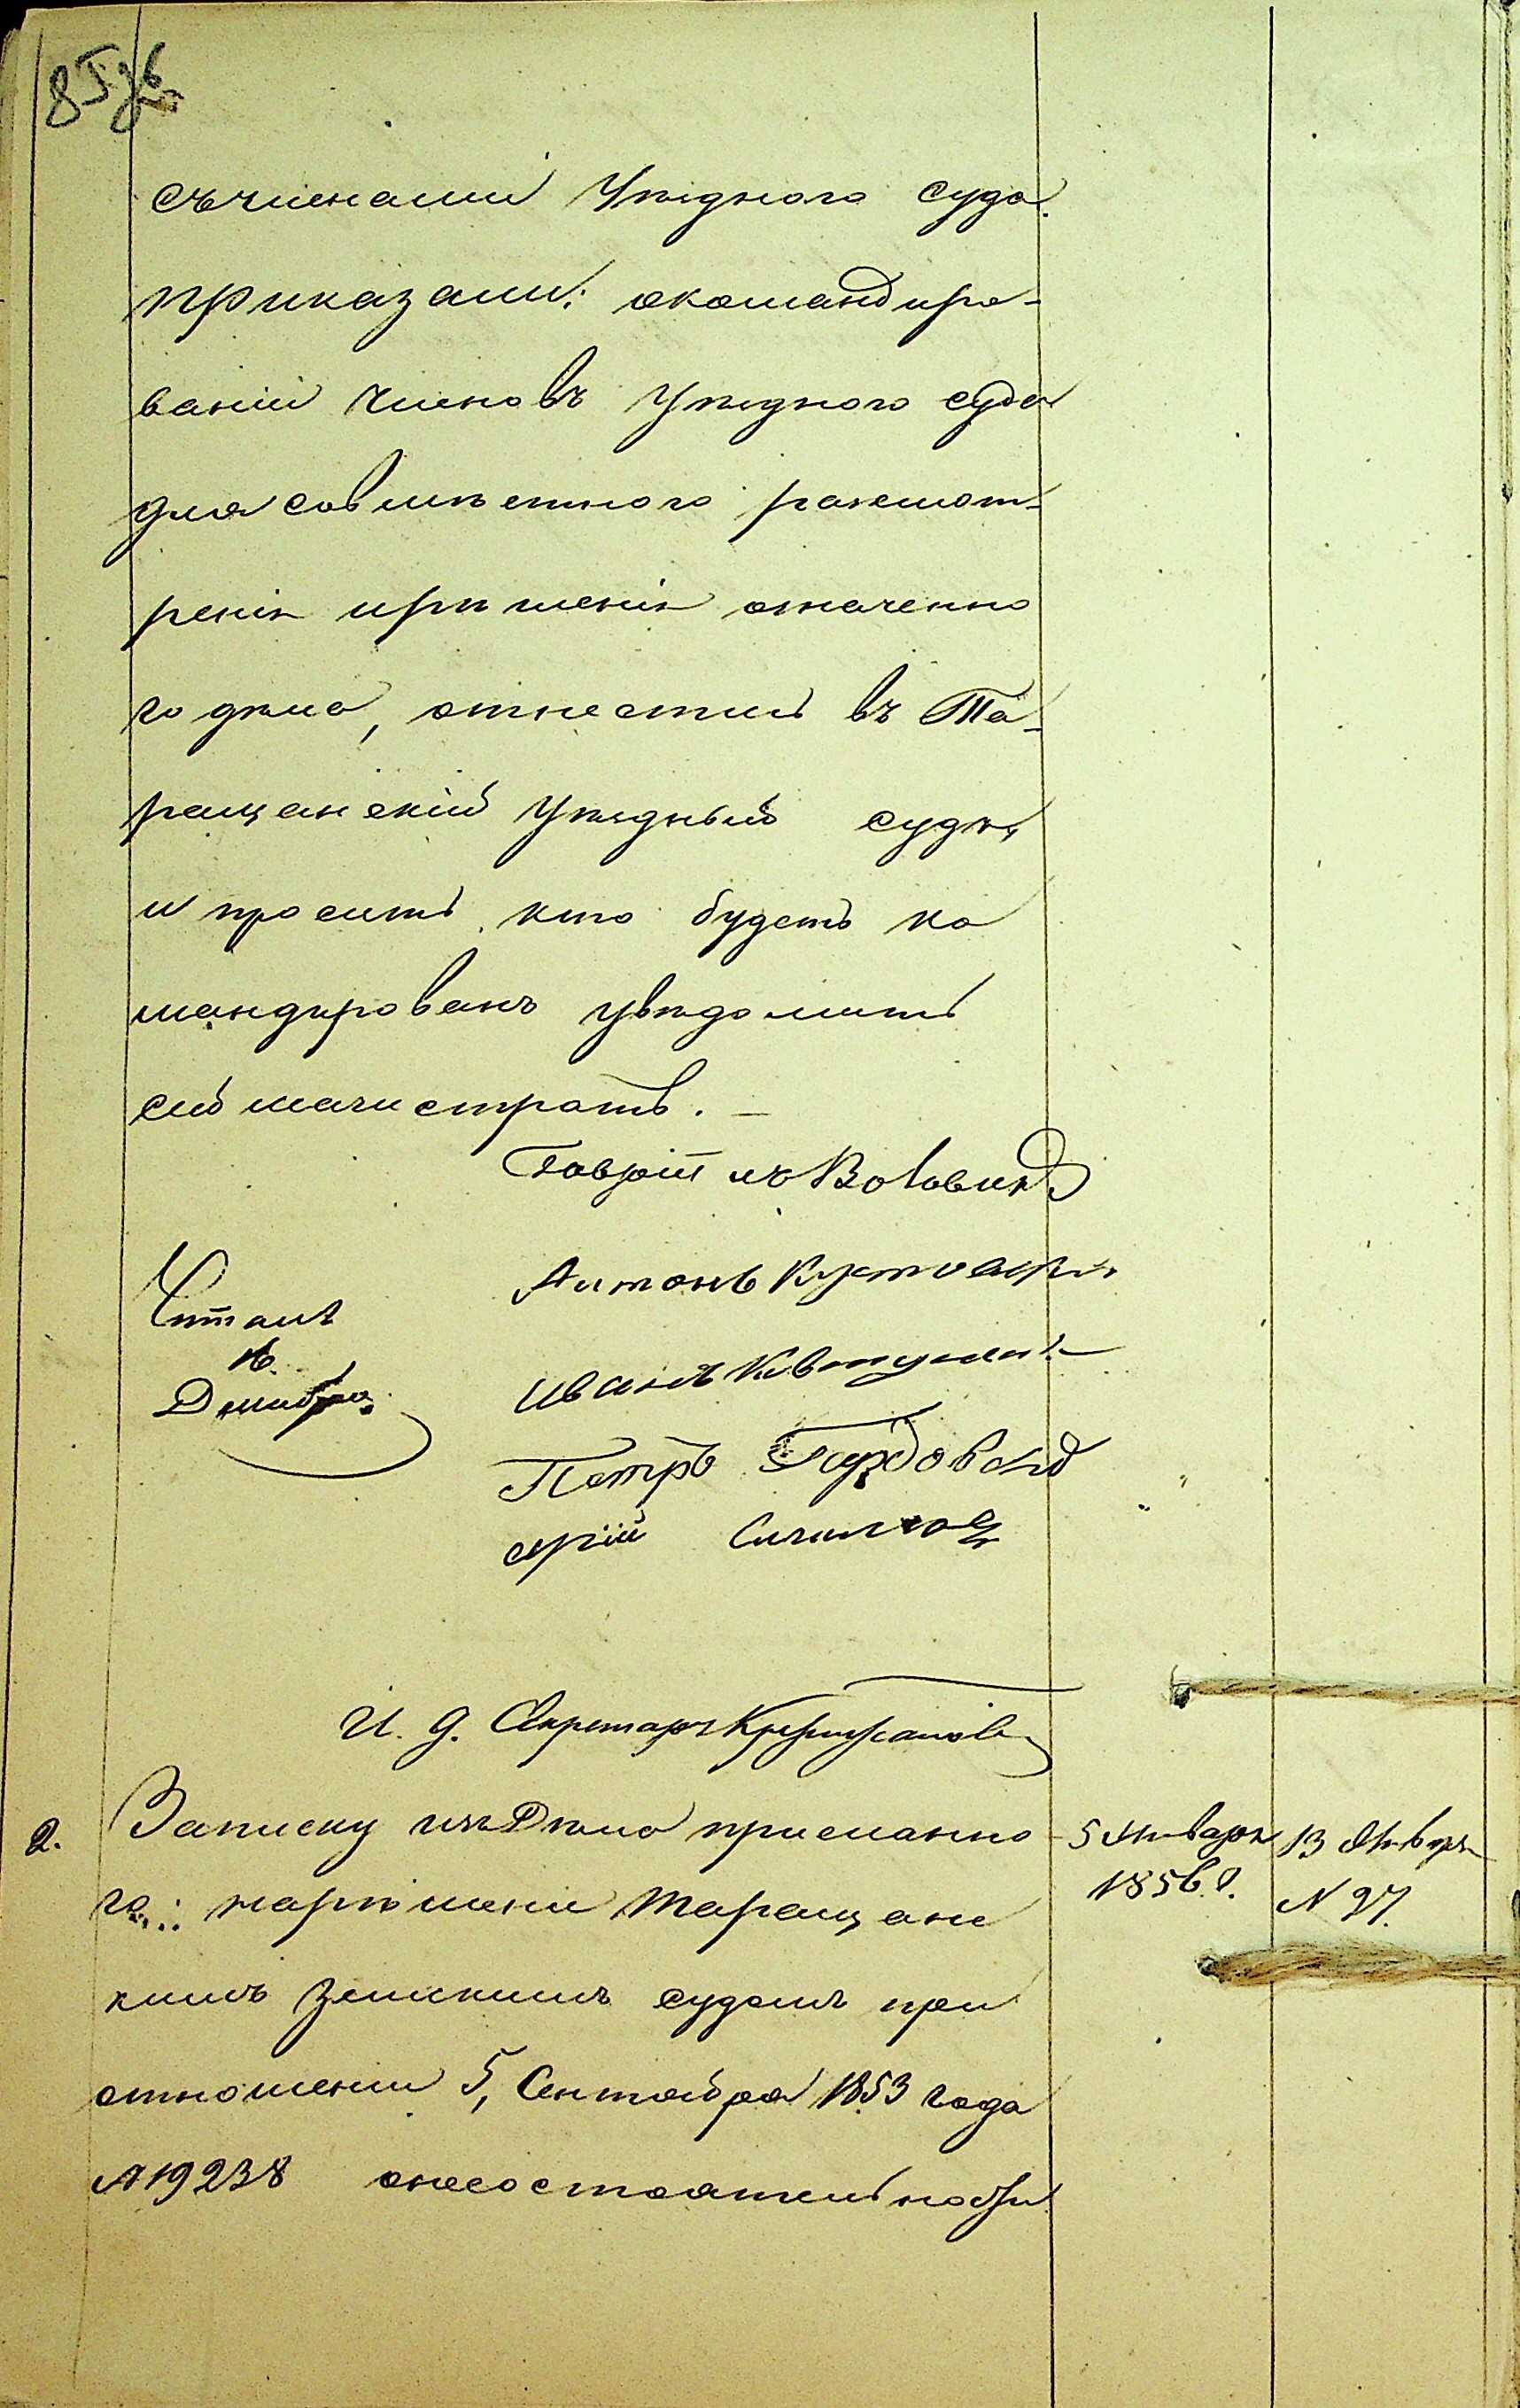 съ членами Уѣзднаго суда.
приказали: о командиро-
ваніи членовъ Уѣзднаго суда
для совмѣстного разсмот-
ренія и рѣшенія означенно
го дѣла, отнестись въ Та-
ращанскій Уѣздный судъ,
и просить кто будетъ ко
мандированъ увѣдомить
сей магистратъ. —
Антонъ
Читалъ
Иванъ Ковтунъ
Петръ
И. д. Секретаря
2. Записку изъ Дѣла присланно
го: на рѣшеніе Таращанс
кимъ Земскимъ судомъ при
отношеніи 5, Сентября 1853 года
№ 19238 о несостоятельности
5 Января
1856 г.
13 Января
N 27.